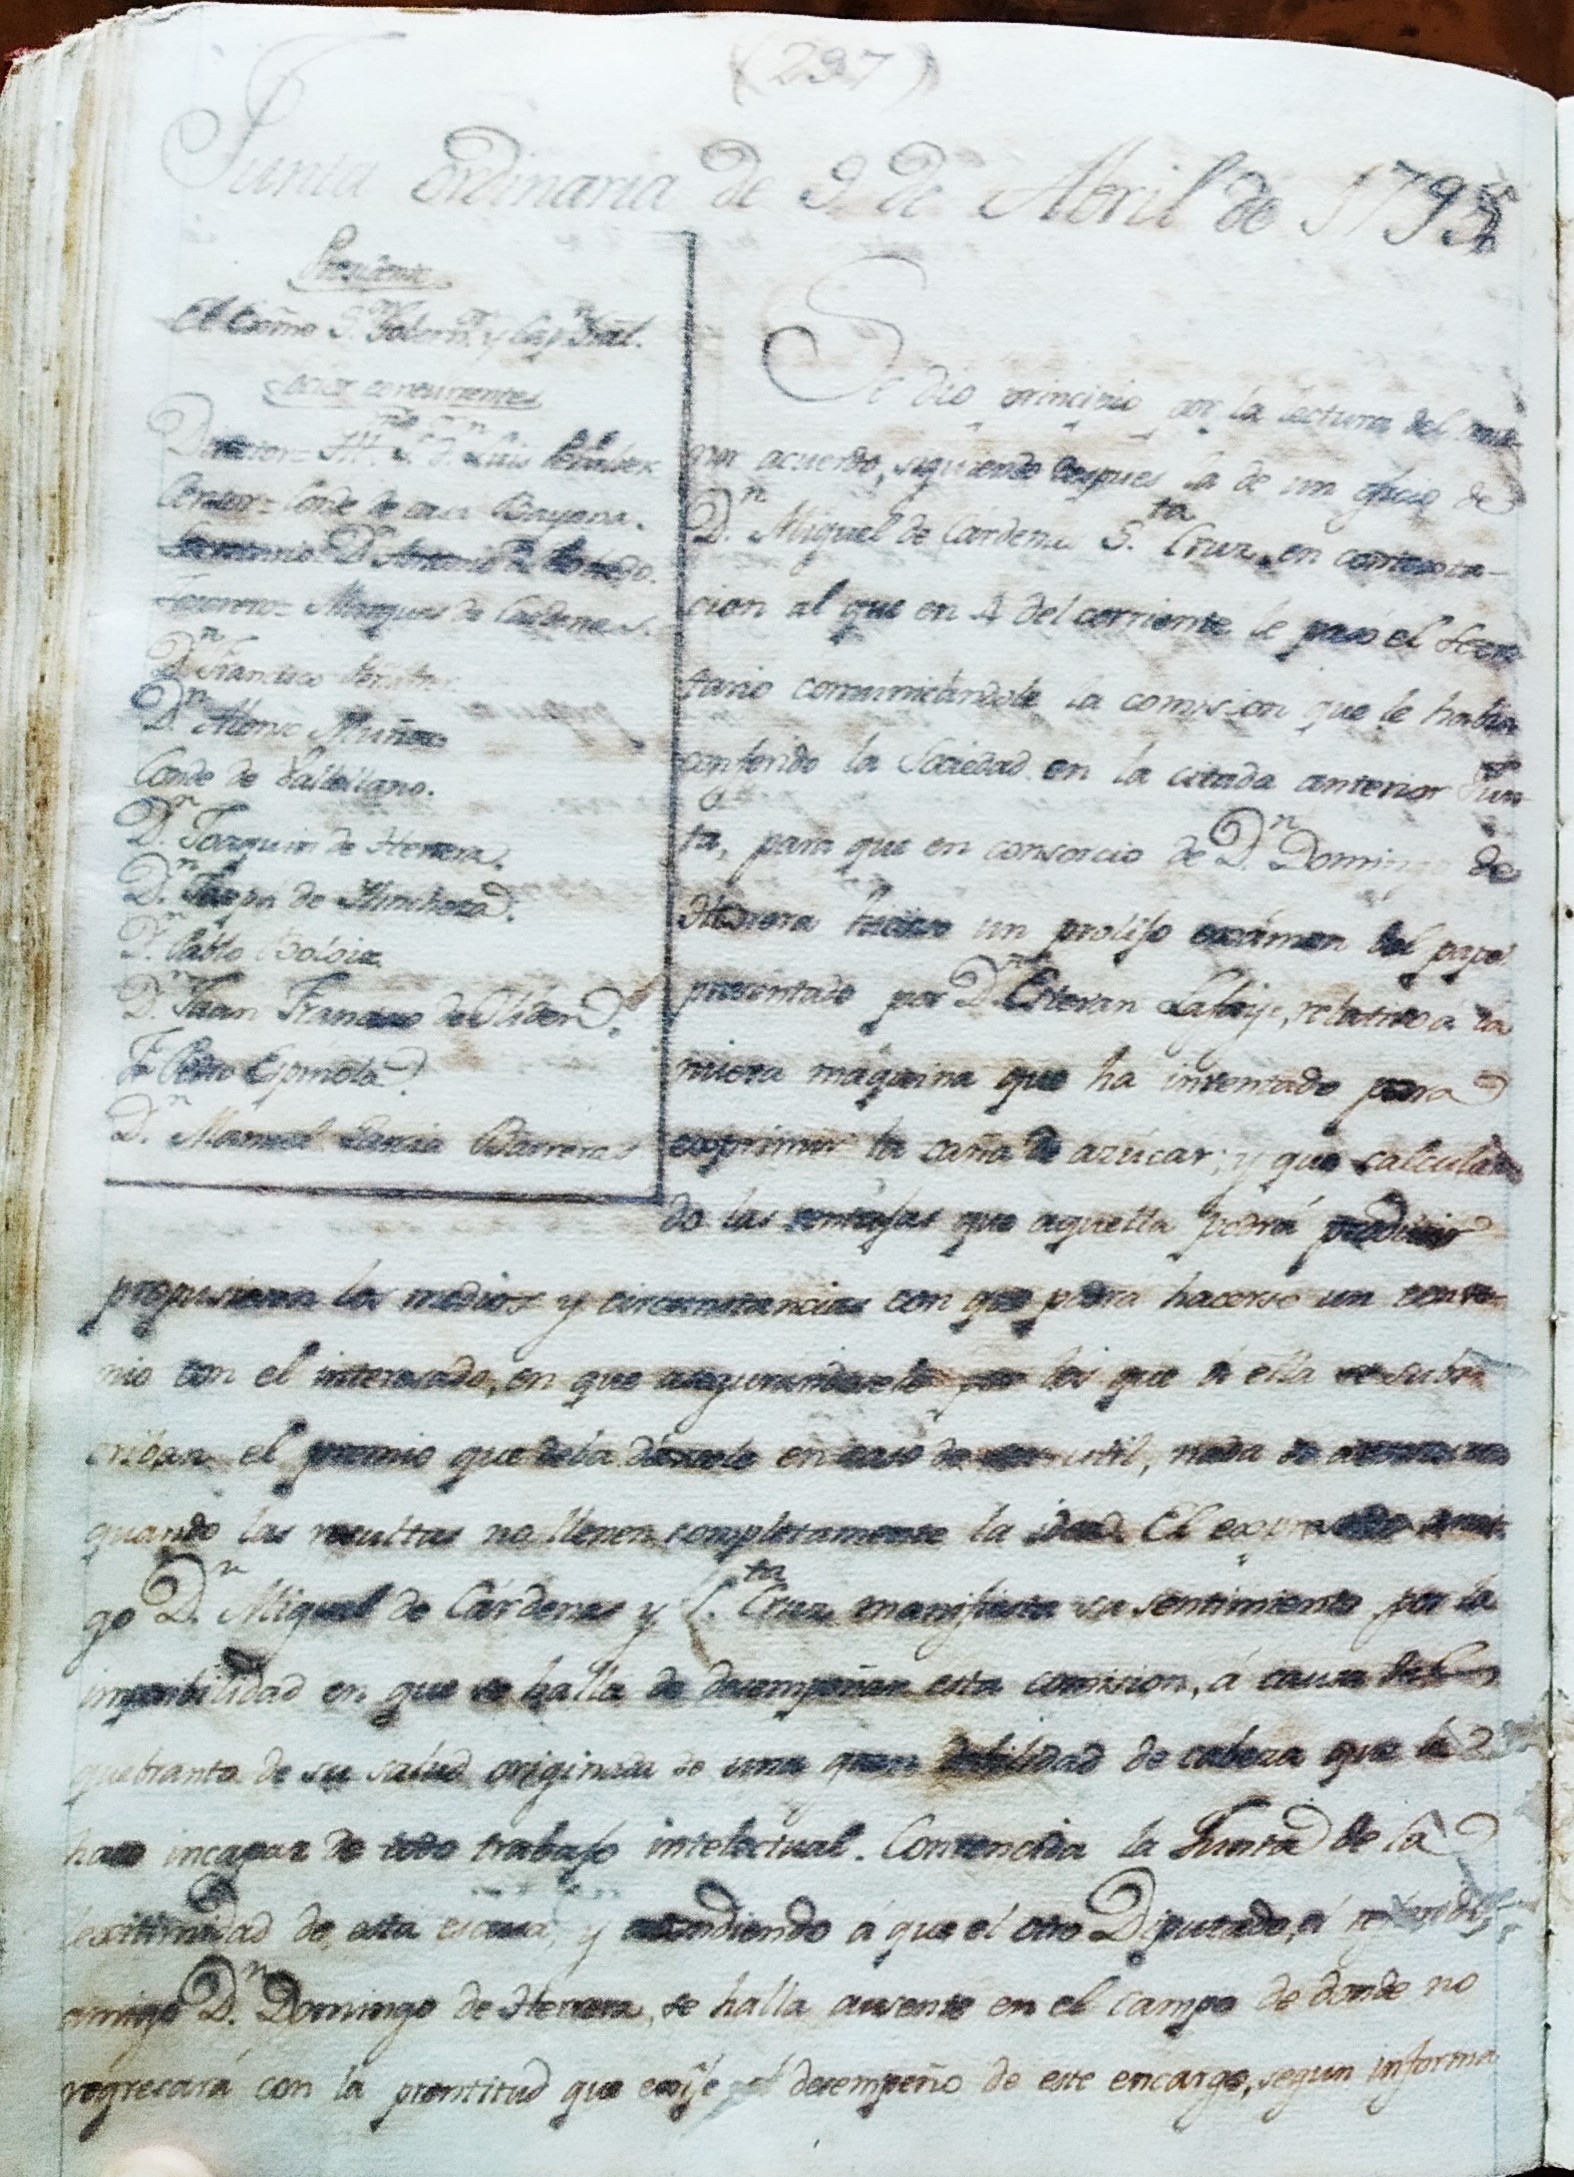 (297)
Junta ordinaria de 9 de Abril de 1795
Presidente
El Exmo S.r Gobern.or y Cap.n Gral.
Socios concurrentes
Director= Ill.mo S.r D.n Luis Peñalver.
Censor= Conde de casa Bayona.
Secretario= D.n Antonio Robredo.
Tesorero= Marques de Cardenas.
D.n Francisco
D.n Alonso Muñoz
Conde de
D.n Joaquin de Herrera.
D.n Josef de Hincheta.
D.n Pablo Boloix
D.n Juan Francisco de Oliden.
Fr. Pedro Espinola
D.n Manuel Garcia Barreras
Se dió principio por la lectura del
acuerdo, siguiendo despues la de un oficio de
D.n Miguel de Cárdenas S.ta Cruz, en contesta-
cion al que en 4 del corriente le pasó el Secre
tario comunicandole la comision que le habia
conferido la Sociedad en la citada anterior Jun
ta, para que en consorcio de D.n Domingo de
Herrera hiciese un prolijo exámen del papel
presentado por D.n Estevan Lafaye, relativo á la
nueva máquina que ha inventado para
exprimir la caña de azúcar; y que calculan
do las ventajas que aquella podrá producir
propusieran los medios y circunstancias con que podra hacerse un conve-
nio con el interesado, en que asegurandosele por los que á ella se subs
criban el premio que deba dársele en caso de ser util, nada se aventure
quando las resultas no llenen completamente la idea. El expresado ami-
go D.n Miguel de Cárdenas y S.ta Cruz manifiesta su sentimiento por la
imposibilidad en que se halla de desempeñar esta comision, á causa del
quebranto de su salud originado de una gran debilidad de cabeza que le
hace incapaz de todo trabajo intelectual. Convencida la Junta de la
lexitimidad de esta escusa, y atendiendo á que el otro Diputado, el
amigo D.n Domingo de Herrera, se halla ausente en el campo de donde no
regresará con la prontitud que exije el desempeño de este encargo, segun informa